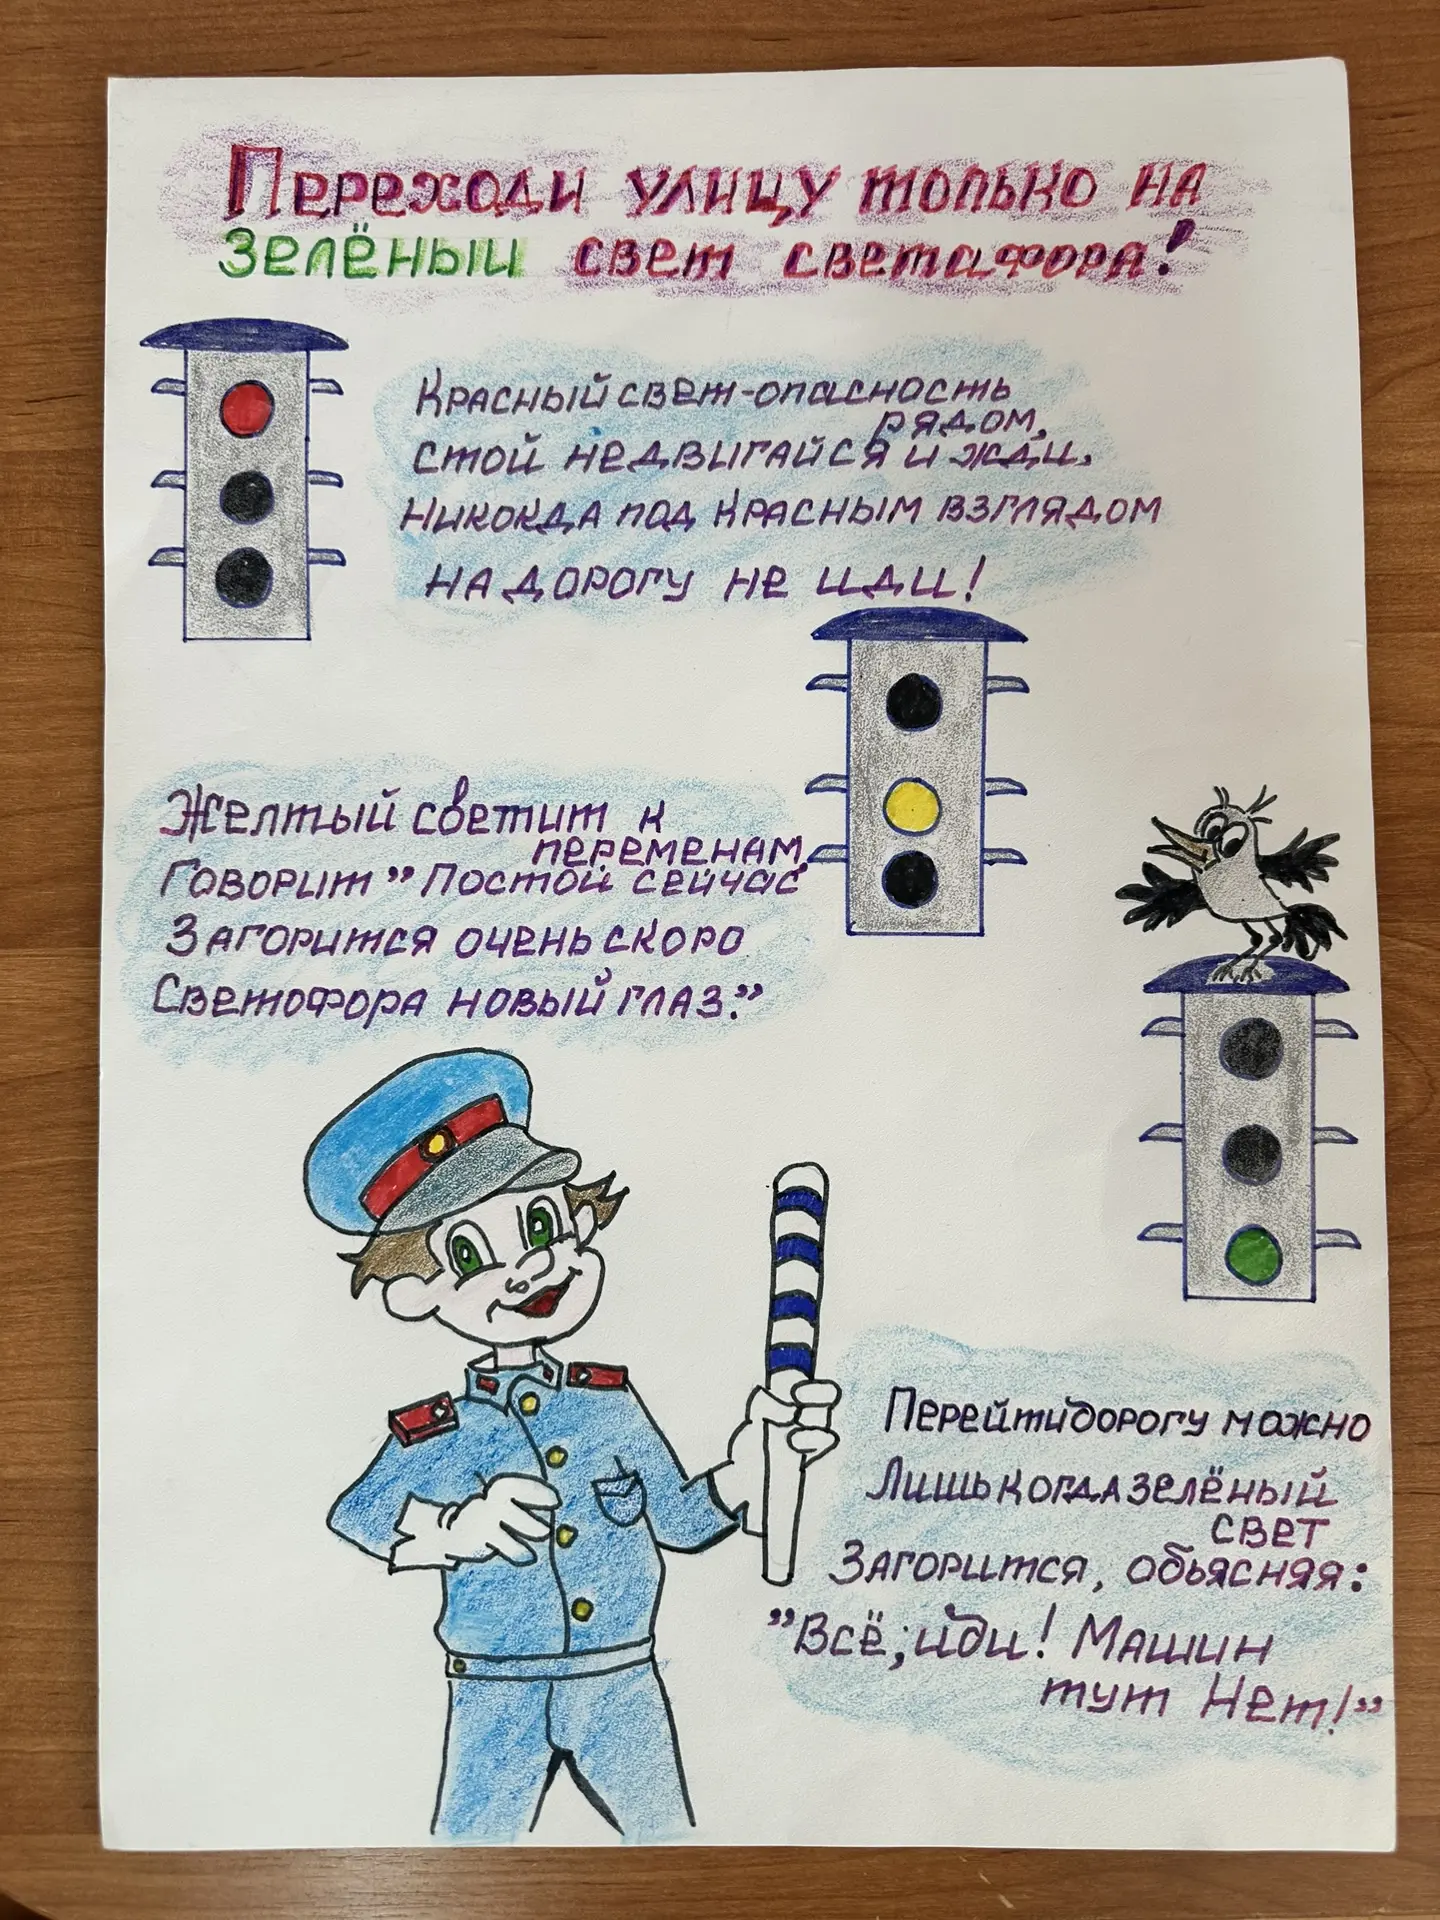 Переходи улицу только на
зелёный свет светафора!
Красный свет-опасность
рядом,
стой недвигайся и жди,
Никокда под красным взглядом
на дорогу не иди!
Желтый светит к
переменам,
Говорит" Постой сейчас
Загорится очень скоро
Светофора новый глаз."
Перейтидорогу можно
Лишь когда зелёный
свет
Загорится, обьясняя:
"Всё, иди! Машин
тут Нет!"